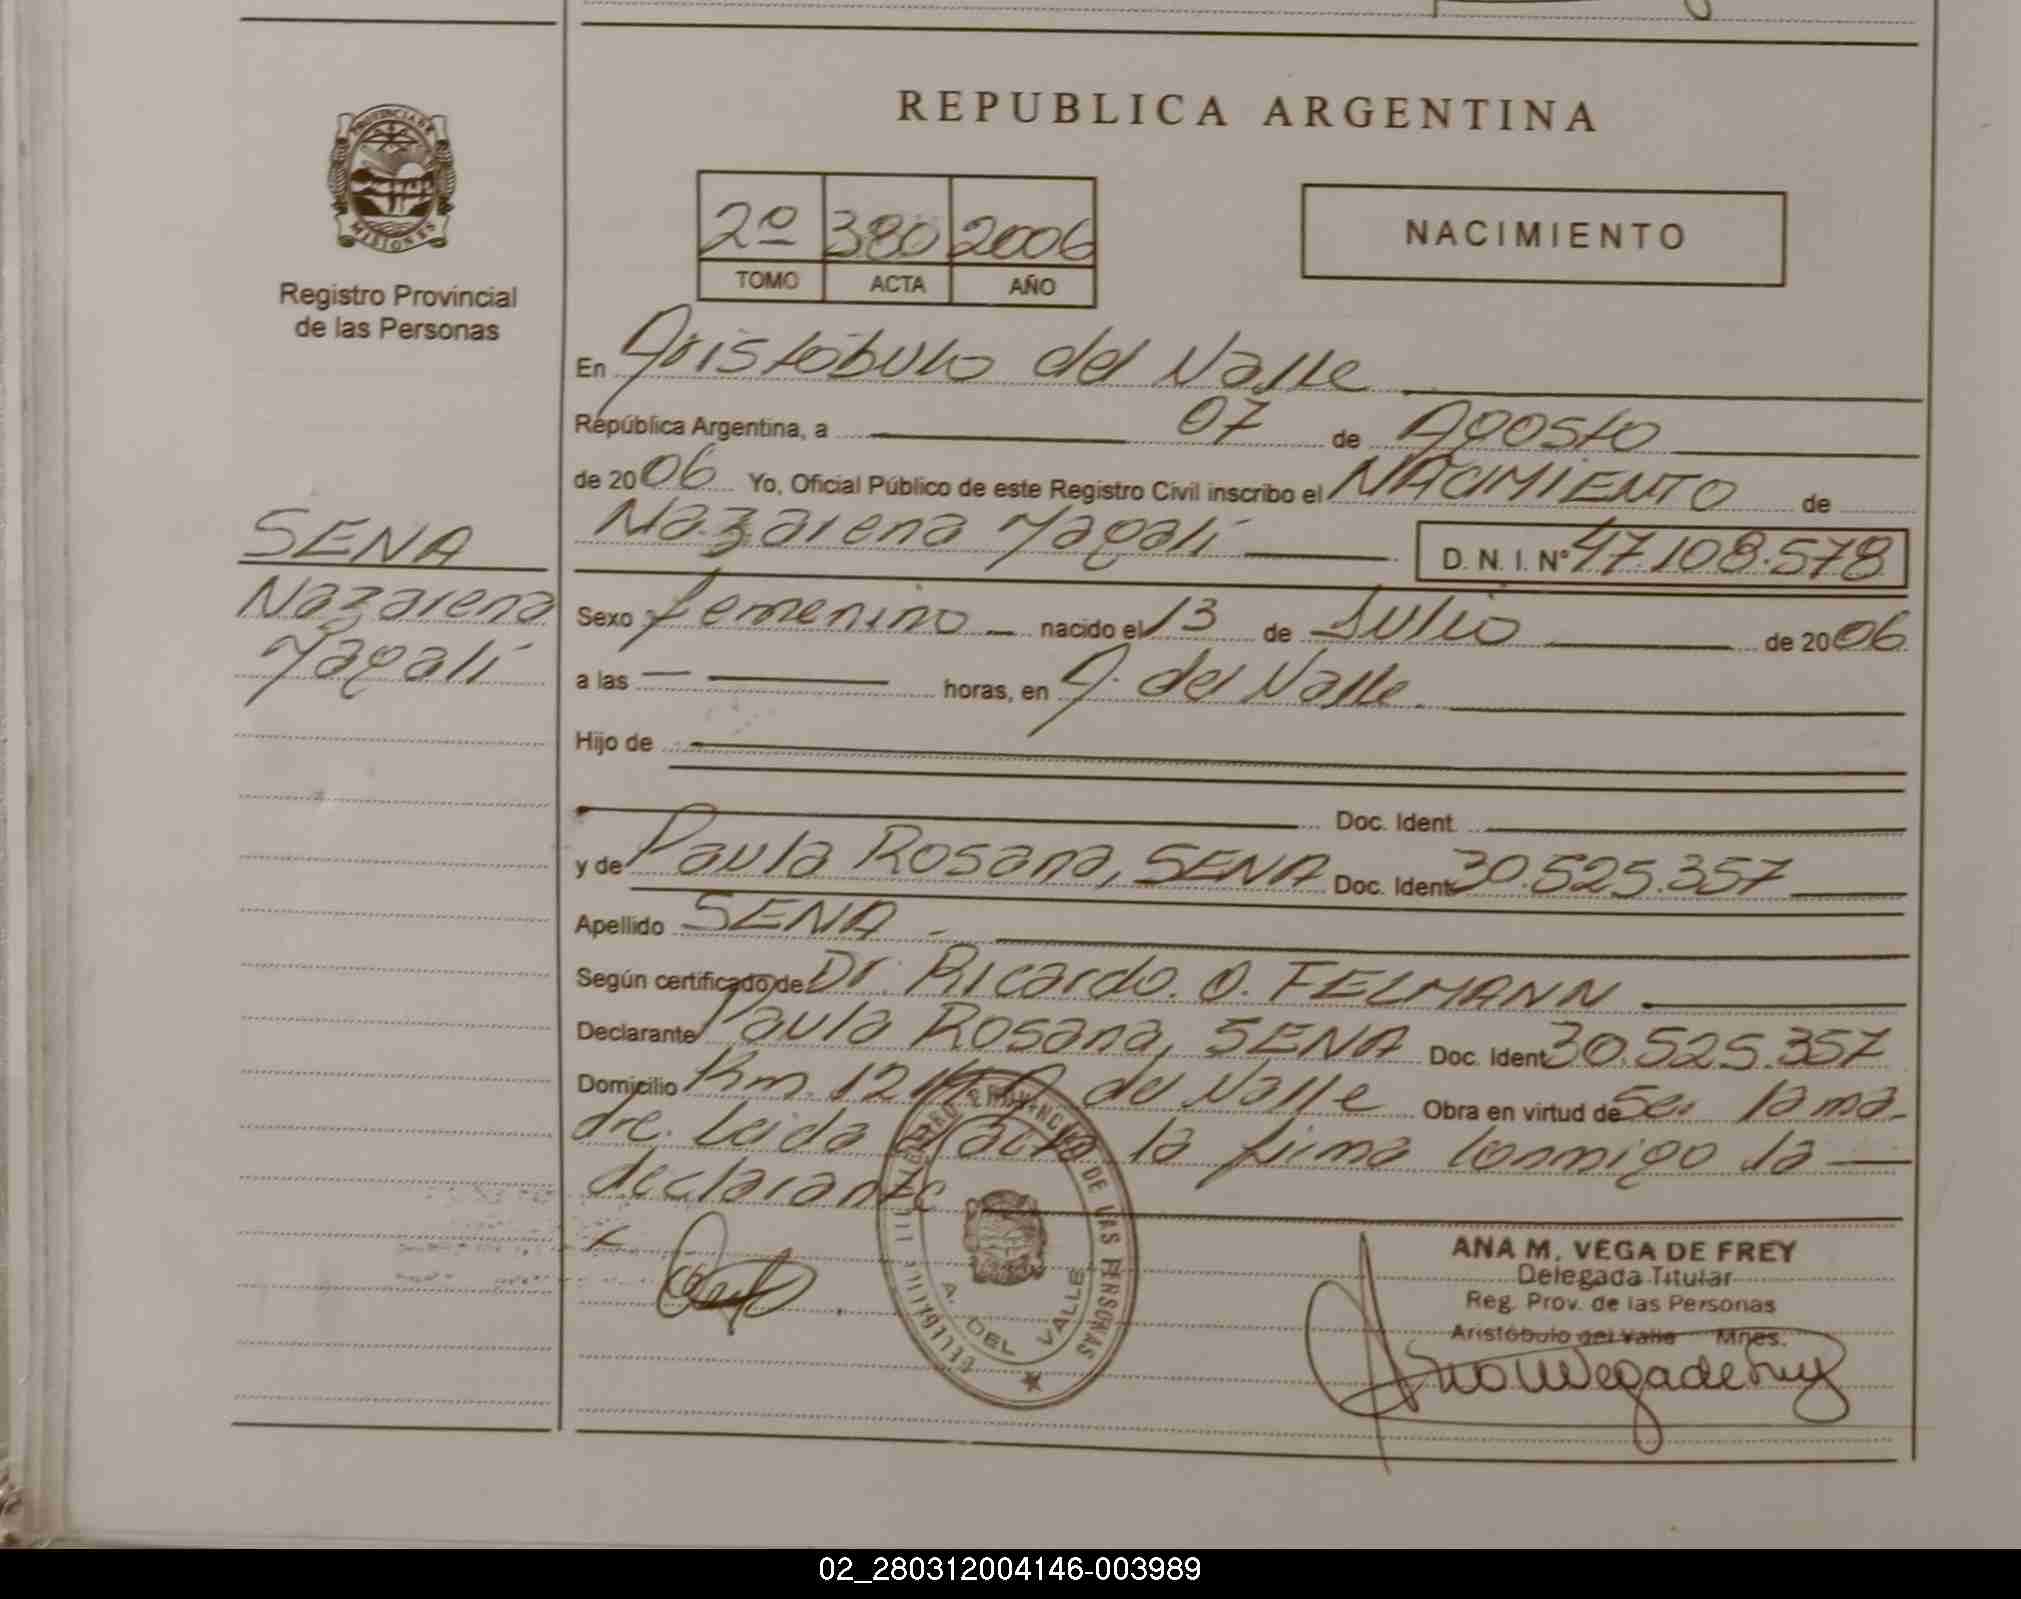 REPUBLICA ARGENTINA
PROVINCIA DE MISIONES
Registro Provincial
de las Personas
2º 380 2006
TOMO ACTA AÑO
NACIMIENTO
En Aristóbulo del Valle
República Argentina, a 07 de Agosto
de 2006 Yo, Oficial Público de este Registro Civil inscribo el NACIMIENTO de
Nazarena Magalí D. N. I. Nº 47.108.578
SENA
Nazarena
Magalí
Sexo femenino nacido el 13 de Julio de 2006
a las — horas, en A. del Valle.
Hijo de
Doc. Ident.
y de Paula Rosana, SENA Doc. Ident 30.525.357
Apellido SENA -
Según certificado de Dr. Ricardo. O. FELMANN
Declarante Paula Rosana, SENA Doc. Ident 30.525.357
Domicilio Km. 1214 A. del Valle Obra en virtud de Ser la ma-
dre. Leida el acta, la firma conmigo la
declarante
PROVINCIAL DE LAS PERSONAS
A. DEL VALLE
ANA M. VEGA DE FREY
Delegada Titular
Reg. Prov. de las Personas
Aristóbulo del Valle Mnes.
Ana M Vega de Frey
02_280312004146-003989